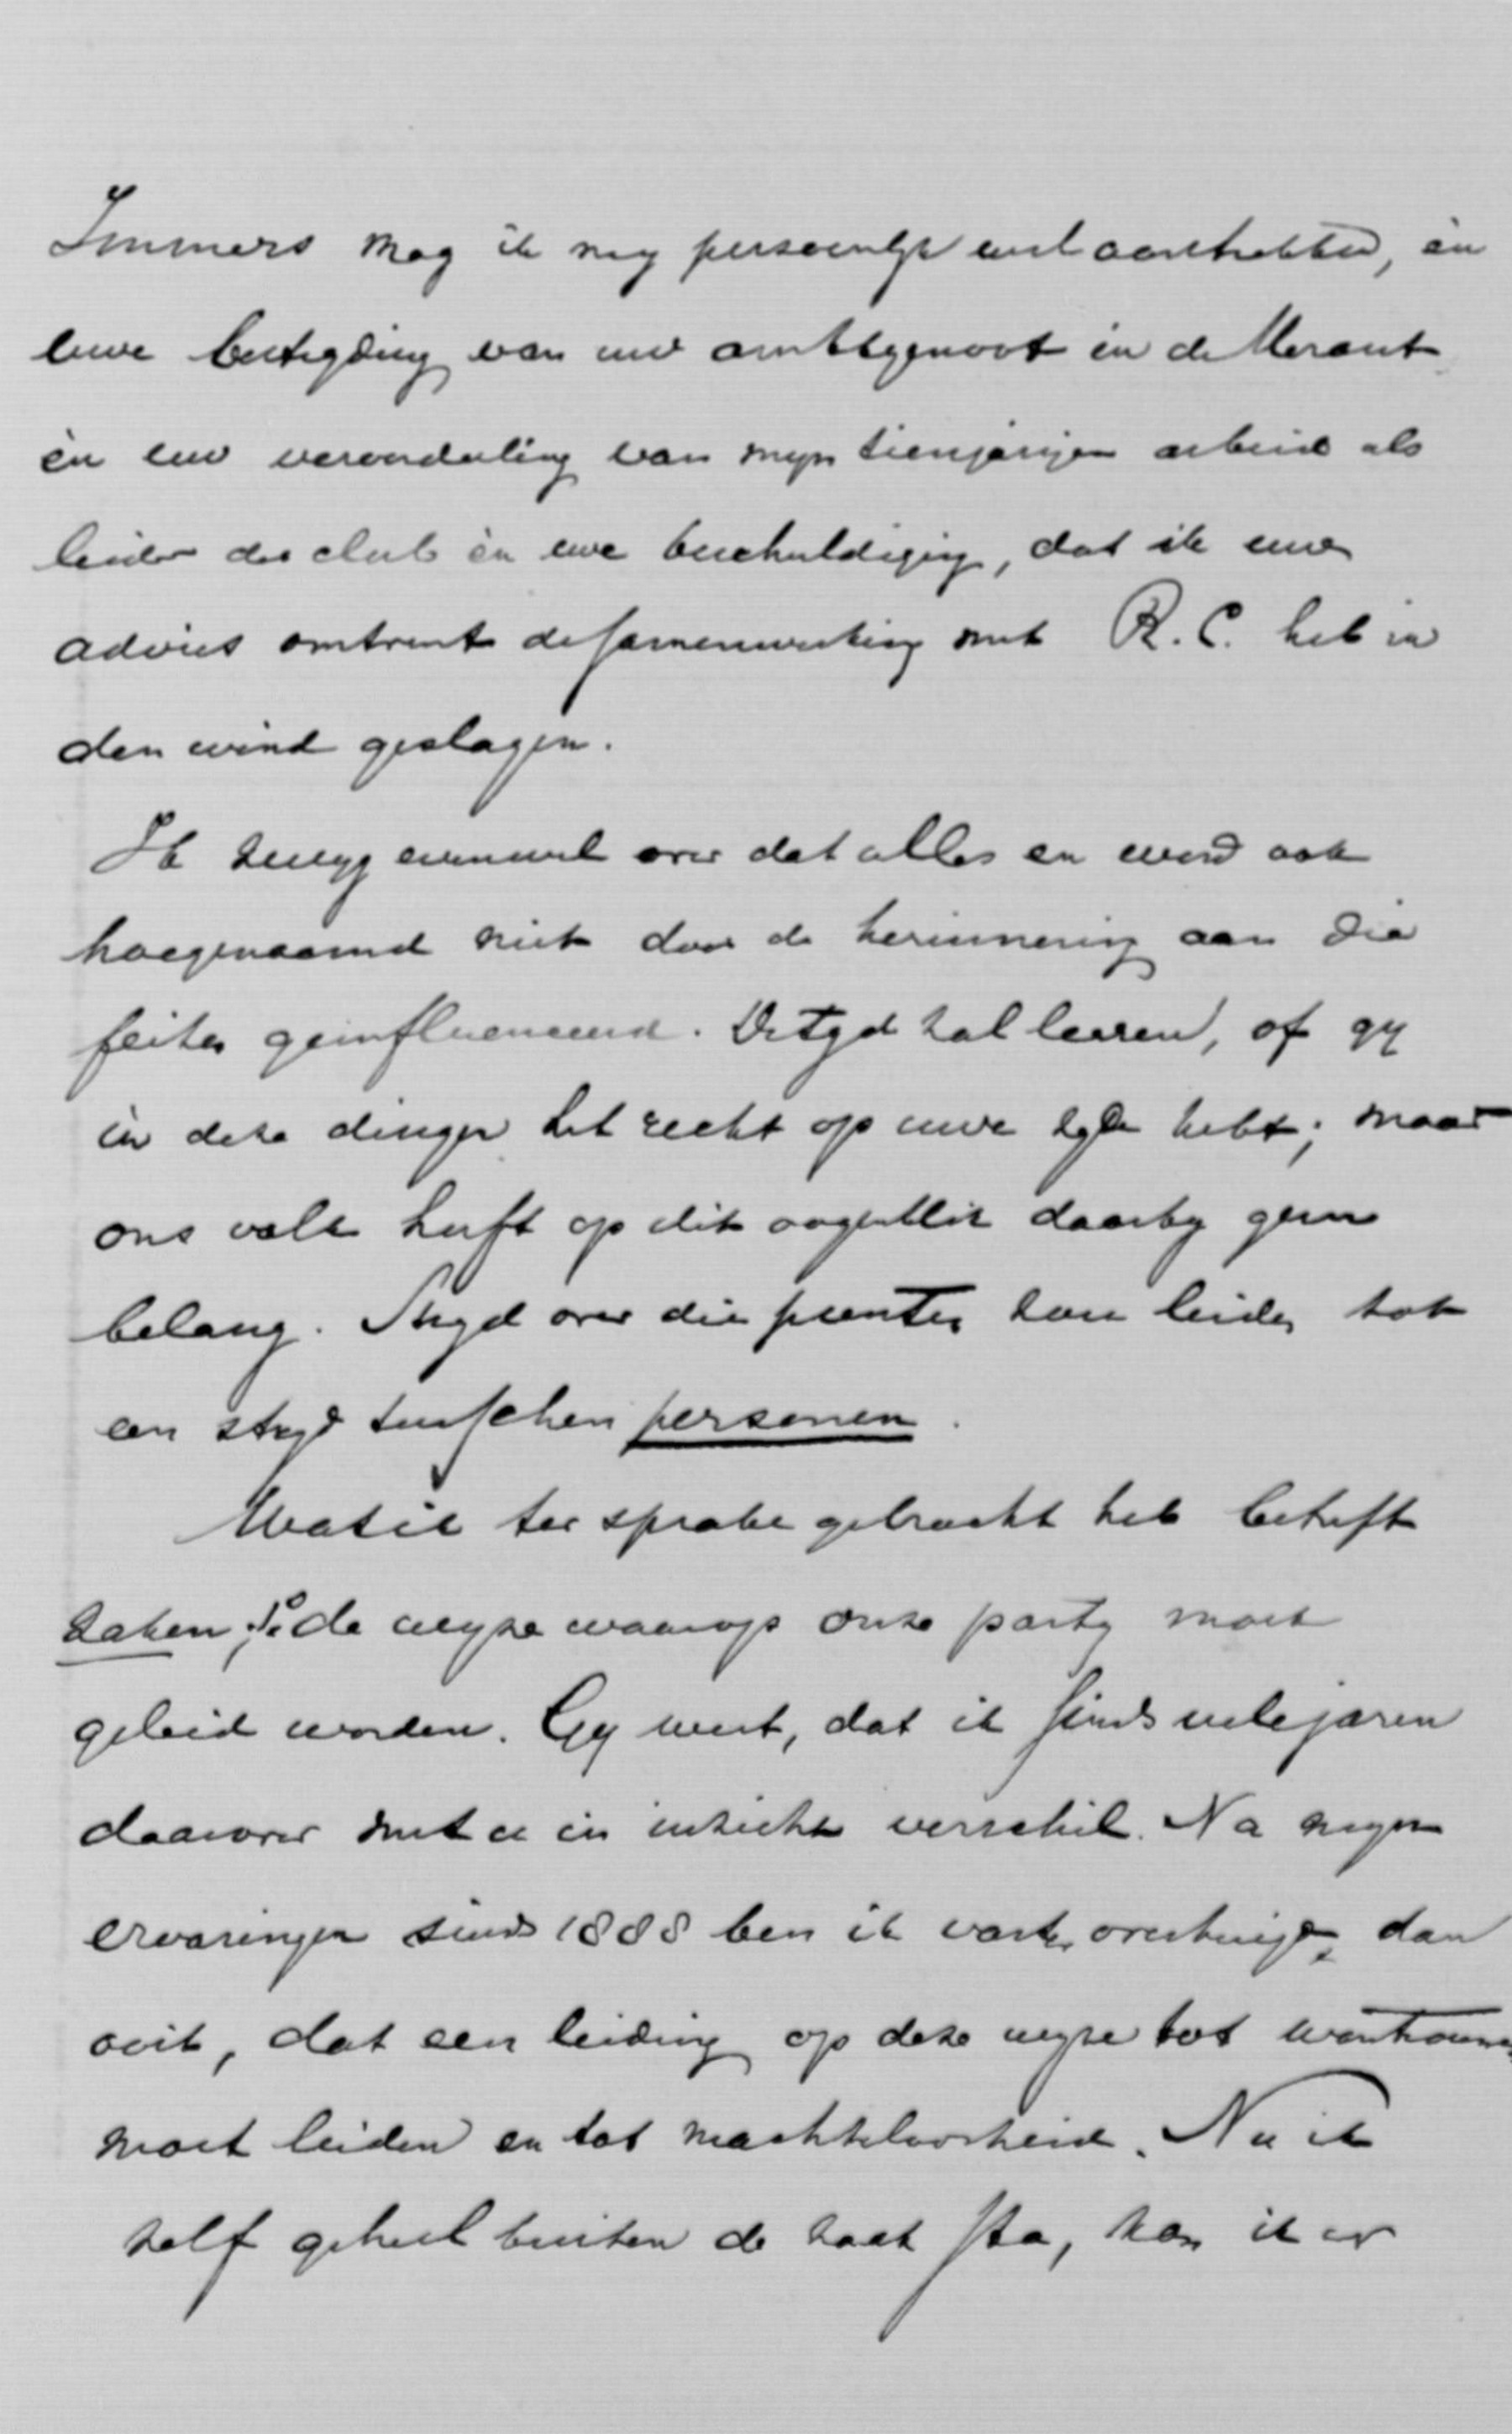 Immers mag ik my persoonlyk wel aantrekken, èn
uwe bestryding van uw ambtgenoot in de Marant
èn uw veroordeeling van myn tienjarigen arbeid als
leider der club èn uwe beschuldiging, dat ik uwe
advies omtrent de samenwerking met R.C. heb in
den wind geslagen.
Ik zwyg evenwel over dat alles en word ook
hoegenaamd niet door de herinnering aan die
feiten geinfluenceerd. De tyd zal leeren, of gy
in deze dingen het recht op uwe zyde hebt; maar
ons volk heeft op dit oogenblik daarby geen
belang. Stryd over die punten kan leiden tot
een stryd tusschen personen.
Wat ik ter sprake gebracht heb betreft
zaken; 1o de wyze waarop onze party moet
geleid worden. Gy weet, dat ik sinds vele jaren
daarover met u in inzicht verschil. Na myn
ervaringen sinds 1888 ben ik vaster overtuigd, dan
ooit, dat een leiding op deze wyze tot wantrouwen
moet leiden en tot machteloosheid. Nu ik
zelf geheel buiten de zaak sta, kan ik er